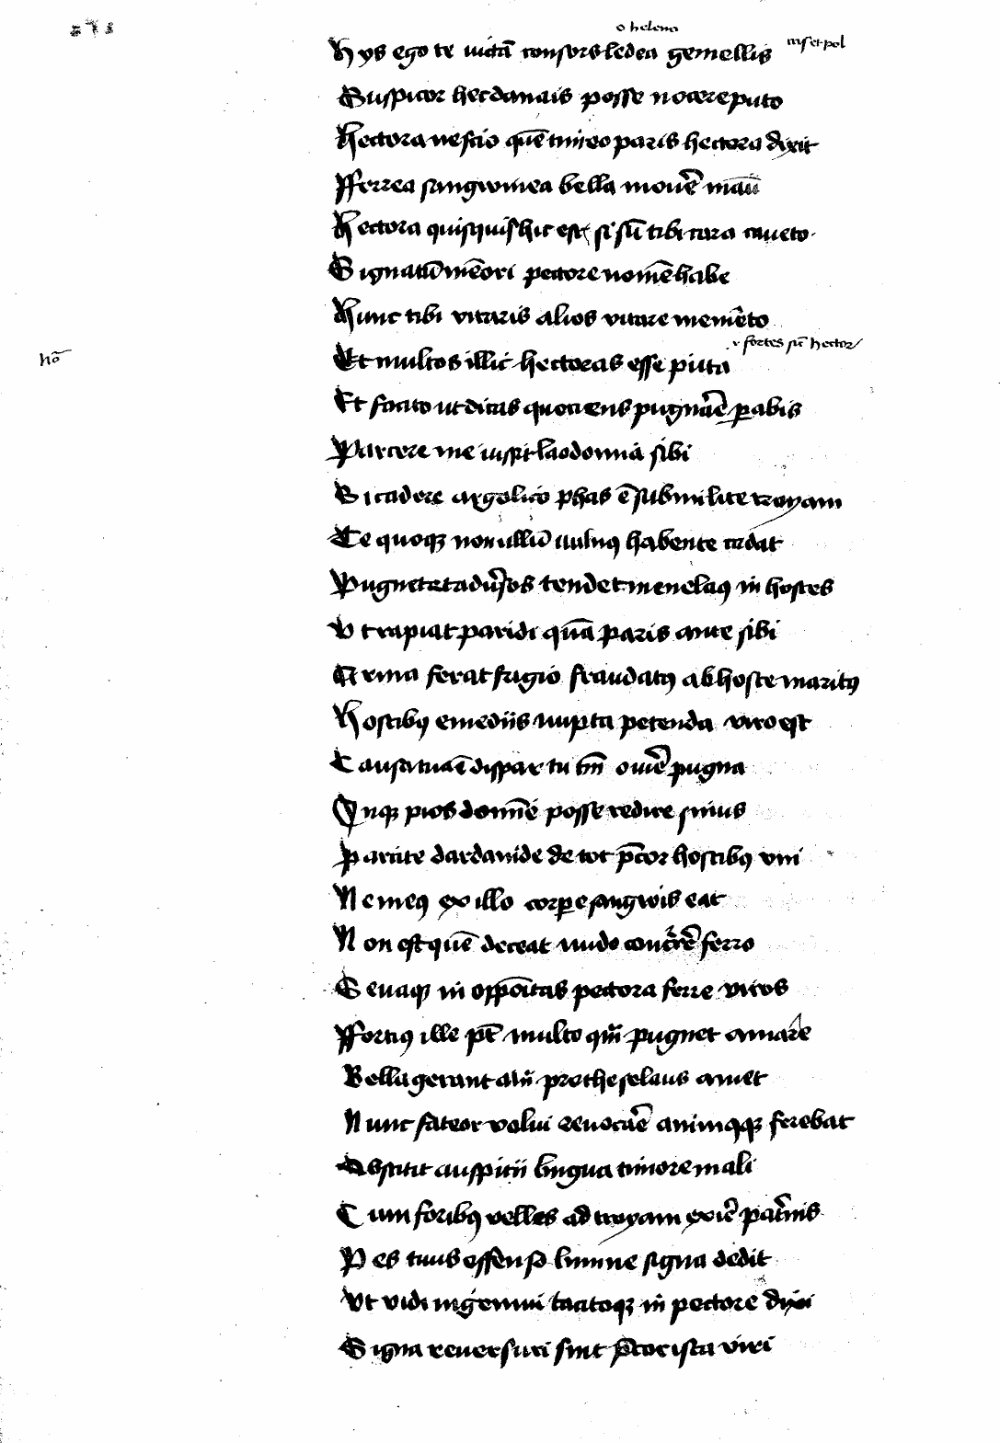 o helena
hys ego te uictã consors ledea gemellis
Suspicor hec danais posse nocere puto
hectora nescio quẽ timeo paris hectora dixit
fferrea sanguinea bella mouẽ manũ
hectora quisquis hic est si sũ tibi cara caueto
Signatũ mẽori pectore nomẽ habe
hunc tibi uitaris alios uitare memẽto
fortes sic hector
hõ
Et multos illic hectoras esse puta
Et facito ut dicas quociens pugnaẽ parabis
Parcere me iussit laodomia sibi
Si cadere argolico phas ẽ sub milite troyam
Te quoqz non ullũ uulnꝯ habente cadat
Pugnet et aduersos tendet menelaꝯ in hostes
Vt rapiat paridi quã paris ante sibi
Arma ferat frigio fraudatꝯ ab hoste maritꝯ
hostibꝯ e mediis nupta petenda uiro est
Causa tua ẽ dispar tu tm̃ ouiẽ pugna
Inqz pios domie posse redire sinus
Parcite dardanide de tot p̃cor hostibꝯ uni
Ne meꝯ ex illo corpore sangwis eat
Non est quẽ deceat nudo concr̃rẽ ferro
Seuaqz in opp̃oitas pectora ferre uiros
fforciꝯ ille pt̃ multo qm̃ pugnet amare
Bella gerant alii protheselaus amet
Nunc fateor uolui reuocaẽ animqqz ferebat
Abstitit auspitii lingua timore mali
Cum foribꝯ uelles ad troyam exiẽ pat̃nis
Pes tuus offenso limine signa dedit
Vt uidi ingemui tacitoqz in pectore dixi
Signa reuersuri sint p̃cor ista uiri